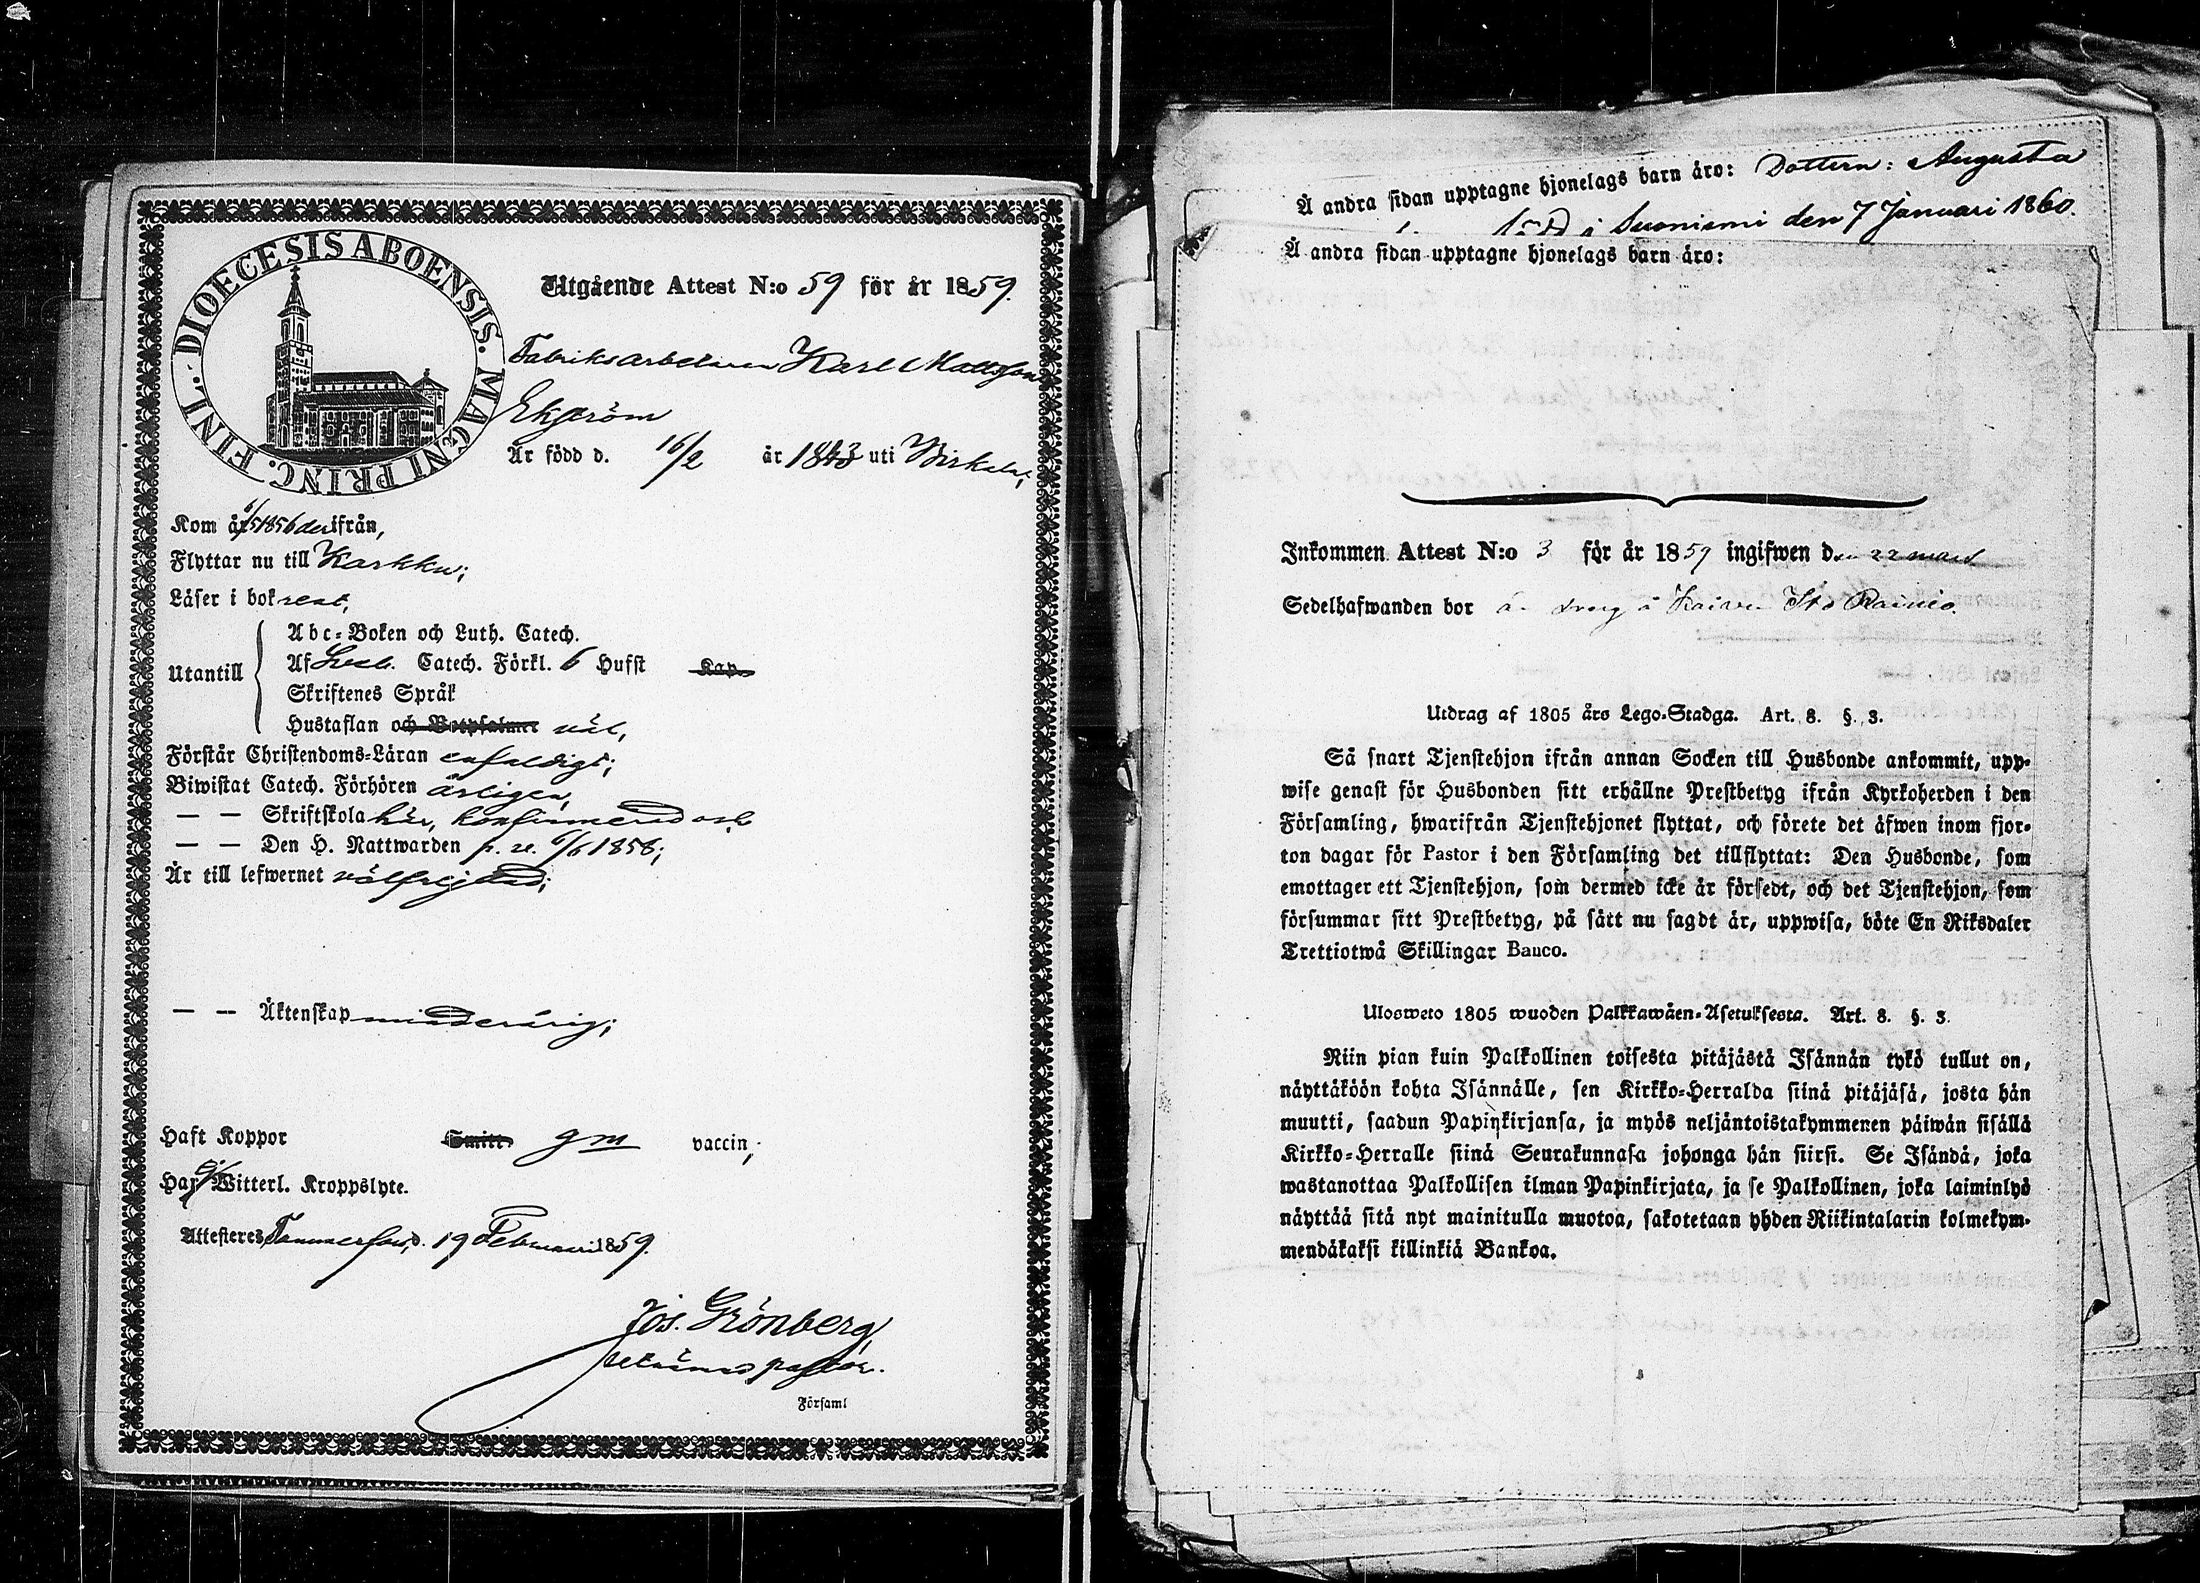 DIOECESIS ABOENSIS. MAGNI PRINC. FINL.
Utgående Attest N:o 59 för år 1859.
Fabriksarbetaren Karl Mattsson
Ekström
Är född d. 16/2 år 1843 uti Birkala;
Kom år 1856 derifrån,
Flyttar nu till Karkku;
Läser i bok rent,
Utantill
Abc-Boken och Luth. Catech.
Af Sveb. Catech. Förkl. 6 Hufst Kap.
Skriftenes Språk
Hustaflan och Botpsalmer väl,
Förstår Christendoms-Läran enfaldigt;
Biwistat Catech. Förhören årligen,
— — Skriftskola här, konfirmerad och
— — Den H. Nattwarden p. se. 6/6 1858;
Är till lefwernet välfrejdad;
— — Äktenskap minderårig;
Haft Koppor Smitt. gm vaccin;
Har ej Witterl. Kroppslyte.
Attesteres Tammerfors d. 19 Februari 1859.
Jos. Grönberg,
pastor.
Församl
Å andra sidan upptagne hjonelags barn äro: Dottern: Augusta
född i Suoniemi den 7 Januari 1860.
Å andra sidan upptagne hjonelags barn äro:
Inkommen Attest N:o 3 för år 1859 ingifwen den 22 mars
Sedelhafwanden bor dreng å Rainio.
Utdrag af 1805 års Lego-Stadga. Art. 8. §. 3.
Så snart Tjenstehjon ifrån annan Socken till Husbonde ankommit, upp-
wise genast för Husbonden sitt erhållne Prestbetyg ifrån Kyrkoherden i den
Församling, hwarifrån Tjenstehjonet flyttat, och förete det äfwen inom fjor-
ton dagar för Pastor i den Församling det tillflyttat: Den Husbonde, som
emottager ett Tjenstehjon, som dermed icke är försedt, och det Tjenstehjon, som
försummar sitt Prestbetyg, på sätt nu sagdt är, uppwisa, böte En Riksdaler
Trettiotwå Skillingar Bauco.
Ulosweto 1805 wuoden Palkkawäen-Asetuksesta. Art. 8. §. 3.
Niin pian kuin Palkollinen toisesta pitäjästä Isännän tykö tullut on,
näyttäköön kohta Isännälle, sen Kirkko-Herralda siinä pitäjäsä, josta hän
muutti, saadun Papinkirjansa, ja myös neljäntoistakymmenen päiwän sisällä
Kirkko-Herralle siinä Seurakunnasa johonga hän siirsi. Se Isändä, joka
wastanottaa Palkollisen ilman Papinkirjata, ja se Palkollinen, joka laiminlyö
näyttää sitä nyt mainitulla muotoa, sakotetaan yhden Riikintalarin kolmekym-
mendäkaksi killinkiä Bankoa.